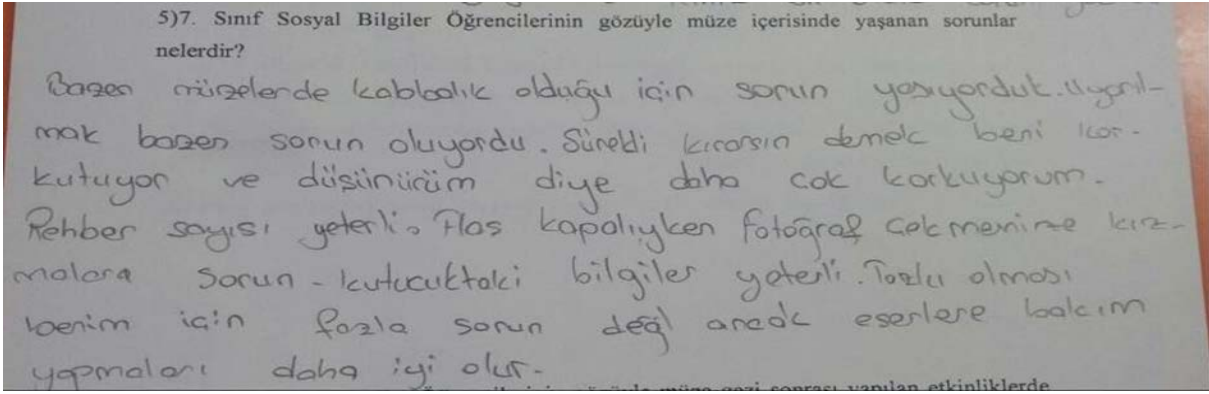 5)7. Sınıf Sosyal Bilgiler Öğrencilerinin gözüyle müze içerisinde yaşanan sorunlar
nelerdir?
Bazen müzelerde kabbalık olduğu için sorun yaşıyorduk. Uyarıl-
mak bazen sorun oluyordu. Sürekli kırarsın demek beni kor-
kutuyor ve düşünürüm diye daha çok korkuyorum.
Rehber sayısı yeterli. Flas kapalıyken fotoğraf çekmemize kız-
maları sorun. kutucuktaki bilgiler yeterli. Tozlu olması
benim için fazla sorun değl ancak eserlere bakım
yapmaları daha iyi olur.
müze gezi sonrası yapılan etkinliklerde